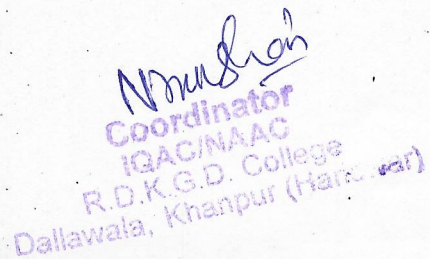 Coordinator
IQAC/NAAC
R.D.K.G.D. College
Dallawala, Khanpur